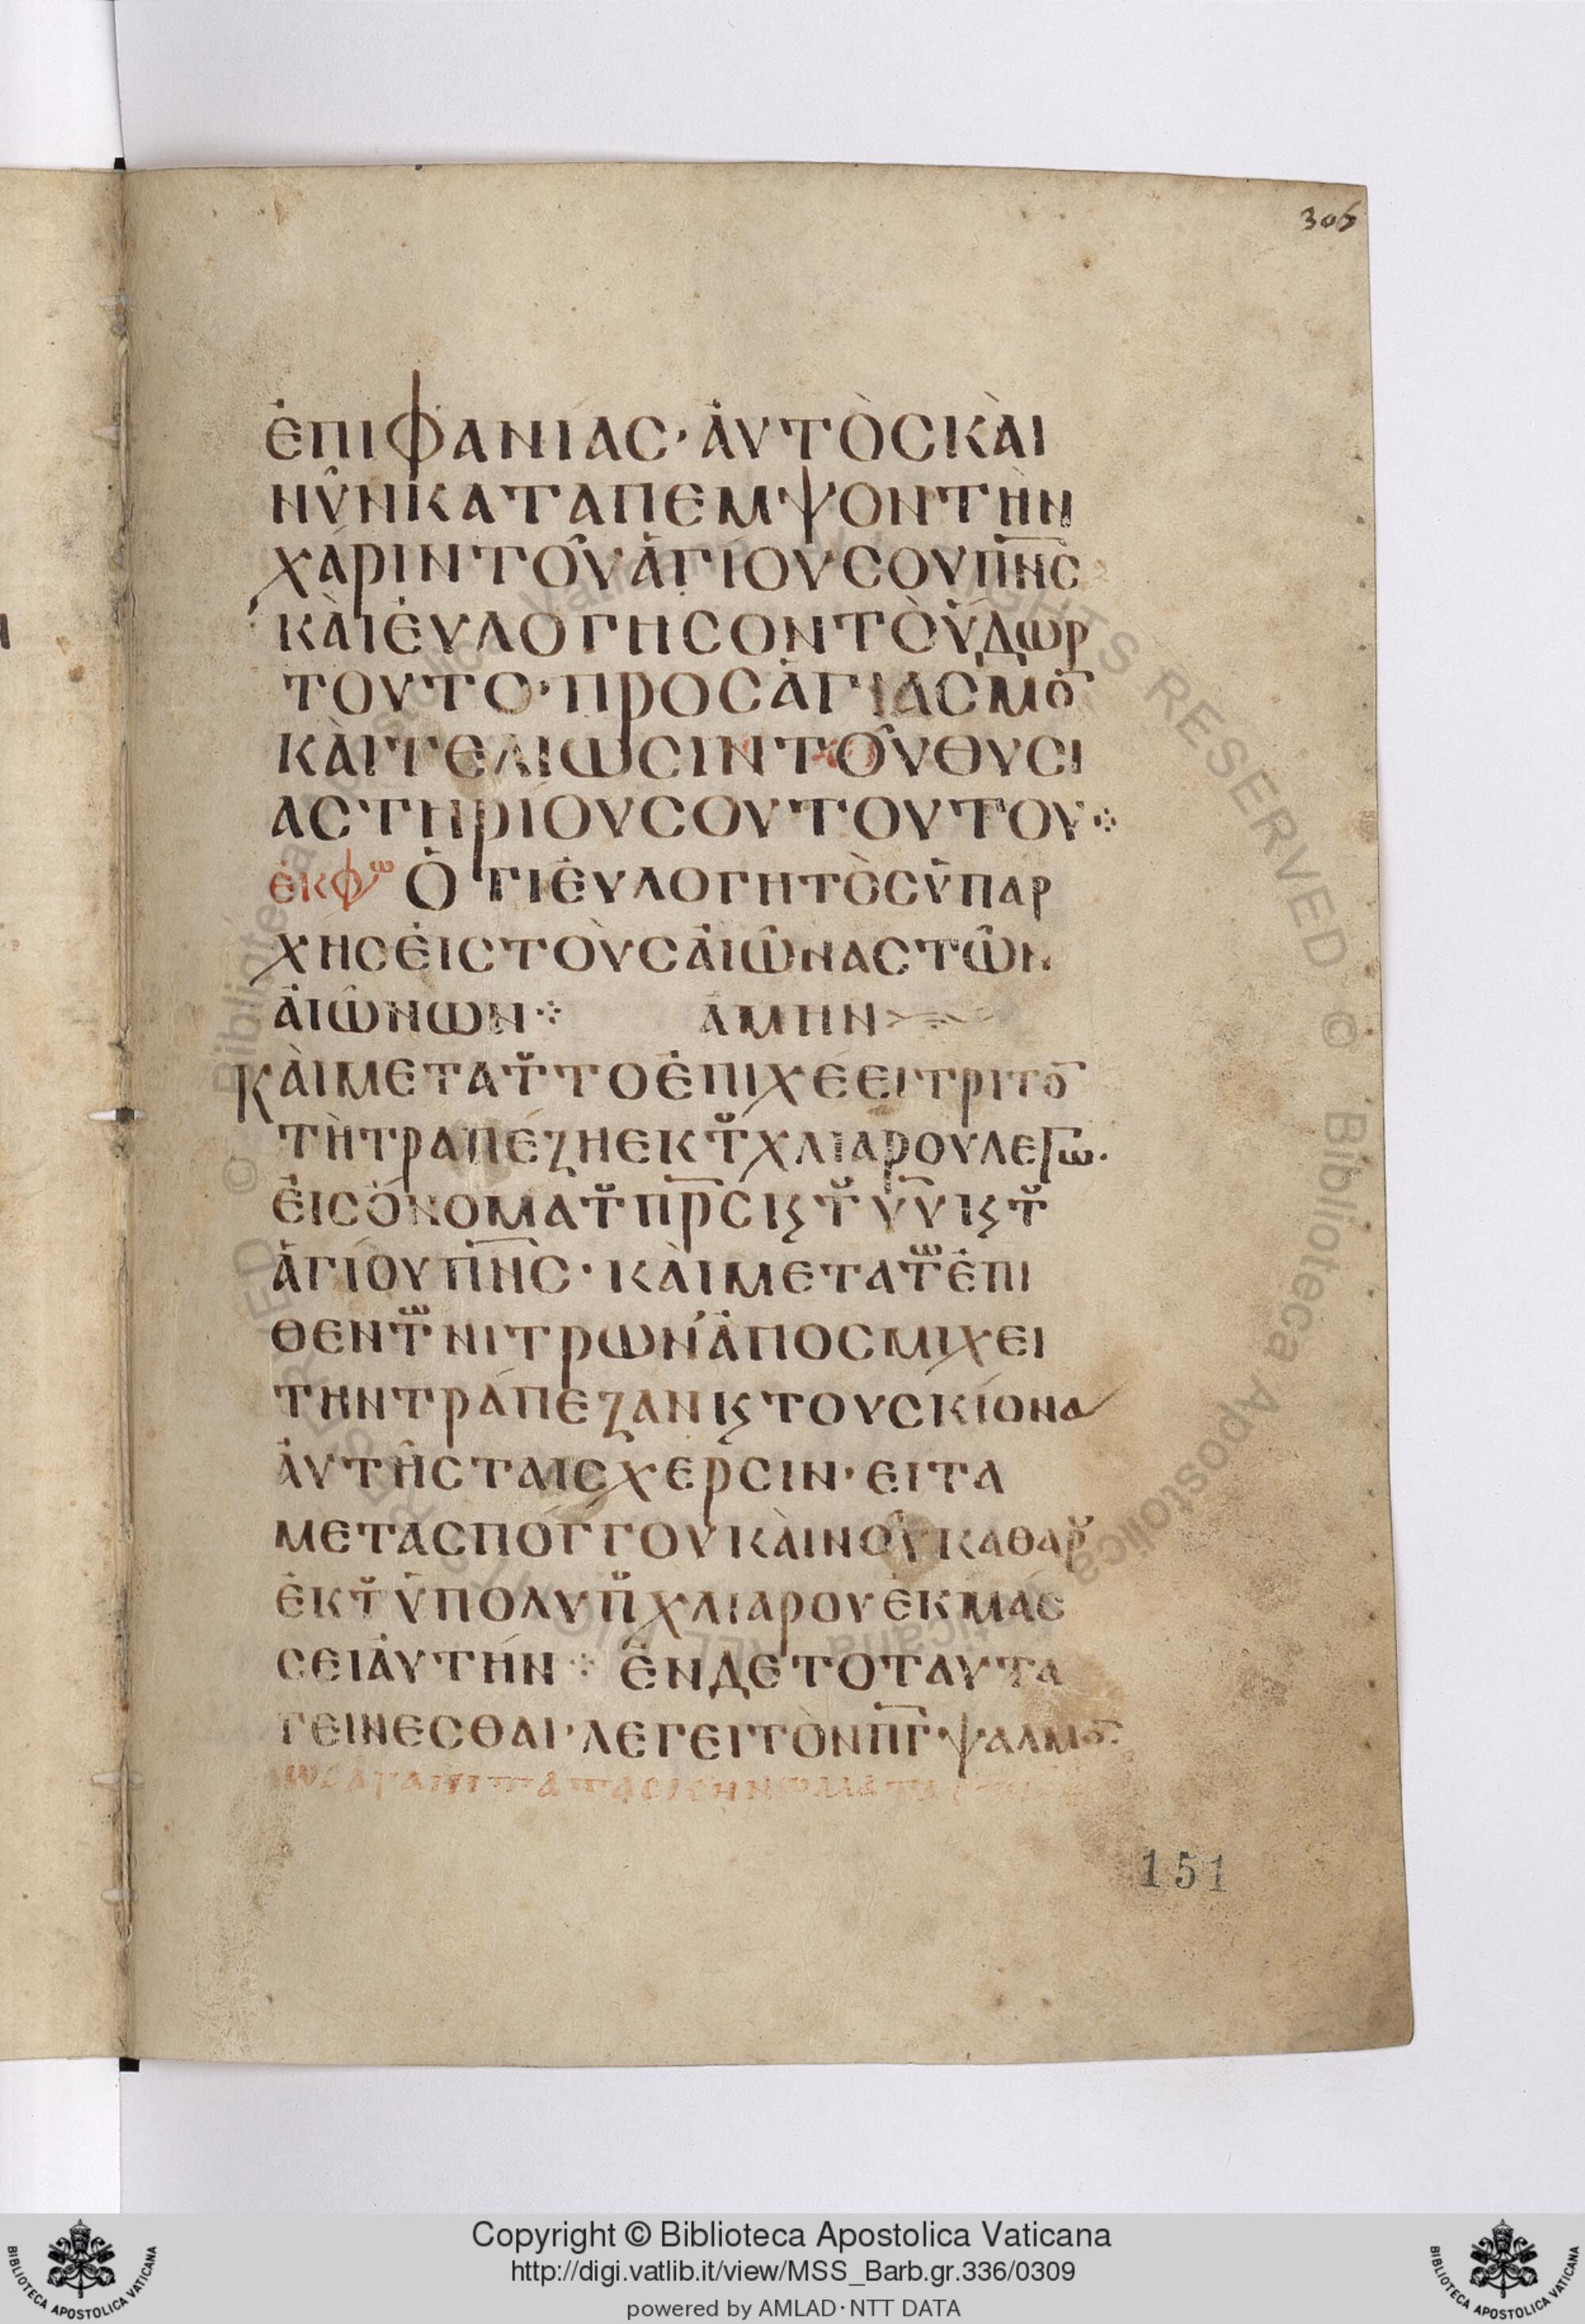 305
ἐπιφανίας· ἀυτὸς κὰι
νῦν καταπεμψον τὴν
χάριν τοῦ ἁγίου σου πν̅ς
κὰι ἐυλόγησον τὸ ὕδωρ
τουτο· προς ἁγιασμὸ̅
κὰι τελίωσιν τοῦ θυσι
αστηρίου σου τουτου ⁘
ἐκφω Ὅτι ἐυλογητὸς ὑπαρ
χης ἐις τοὺς ἀιῶνας τῶν
ἀιῶνων ⁘ ἀμην
Κὰι μετα τȣ̂το ἐπιχέει τριτο̅
τὴ τραπέζη εκ τȣ̂ χλιαρου λεγω·
ἐις ὄνομα τȣ̂ πρ̅ς κ̣ς τȣ̂ υυ̅ κς τȣ̂
ἁγίου πν̅ς· κὰι μετα τω̃ ἐπι
θεντω̃ νιτρων ἀποσμιχει
την τράπεζαν κς τους κίονα
ἀυτῆς ταις χερσιν· ειτα
μετα σπόγγου κὰινοῦ καθαρȣ
ἐκ τȣ̂ ὑπολυπȣ χλιαρου ἐκμάσ
σει ἀυτήν ⁘ ἐν δε το ταυτα
γεινεσθαι· λεγει τὸν πγ̅· ψαλμο̅·
151
Copyright © Biblioteca Apostolica Vaticana
http://digi.vatlib.it/view/MSS_Barb.gr.336/0309
powered by AMLAD·NTT DATA
BIBLIOTECA APOSTOLICA VATICANA
BIBLIOTECA APOSTOLICA VATICANA